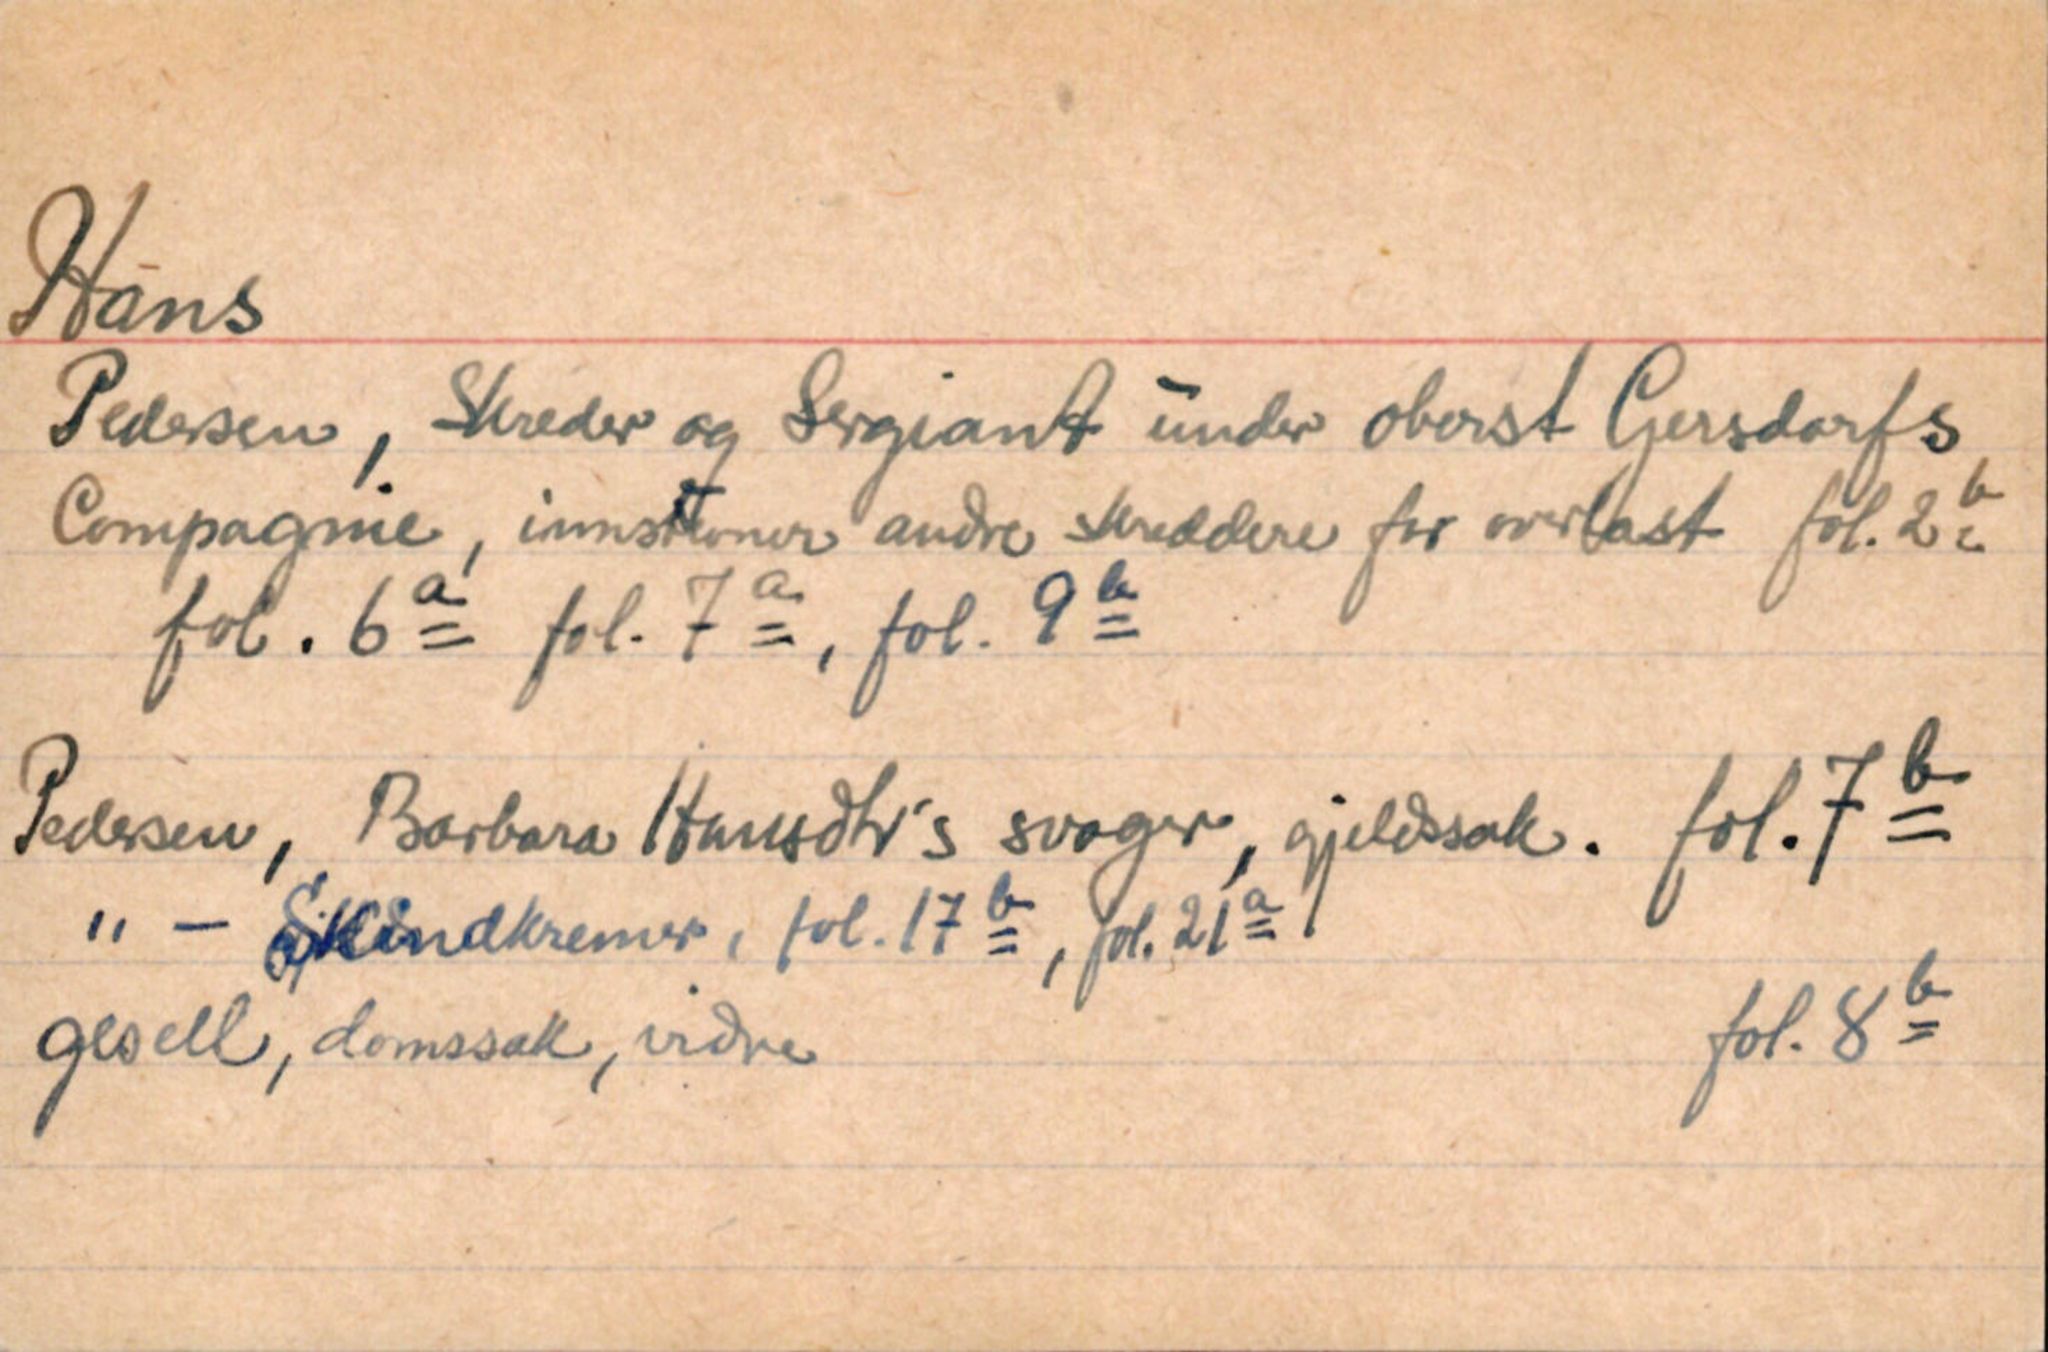 Hans
Pedersen, Skreder og Sergiant under oberst Gersdorfs
Compagnie, innstevner andre skreddere for overlast fol. 2b
fol. 6a fol. 7a, fol. 9b
Pedersen, Barbara Hansdtr's svoger, gjeldssak. fol. 7b
" - Skindkremer, fol. 17b, fol. 21a
gesell, domssak, vidre fol. 8b